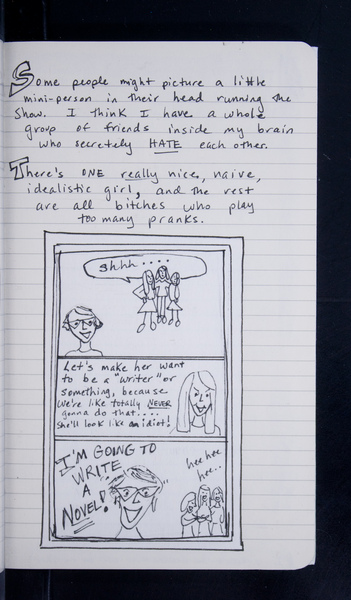 Some people might picture a little
mini-person in their head running the
show. I think I have a whole
group of friends inside my brain
who secretely HATE each other.
There's ONE really nice, naive,
idealistic girl, and the rest
are all bitches who play
too many pranks.
shhh....
Let's make her want
to be a "writer" or
something, because
We're like totally NEVER
gonna do that....
She'll look like an idiot!
I'M GOING TO
WRITE
A
NOVEL!
hee hee
hee..